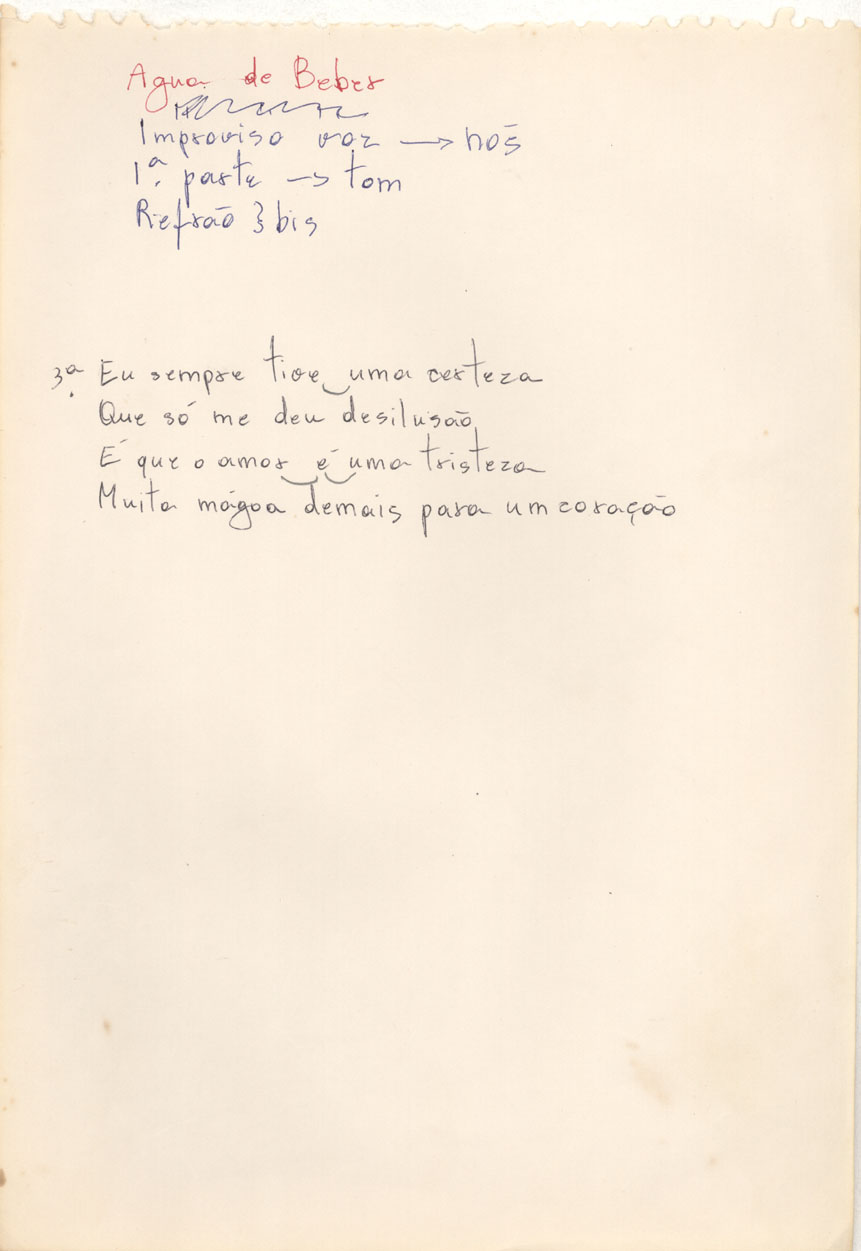 Agua de Beber
Improviso voz → nós
1ª. parte → tom
Refrão } bis
3ª. Eu sempre tive uma certeza
Que só me deu desilusão
É que o amor é uma tristeza
Muita mágoa demais para um coração